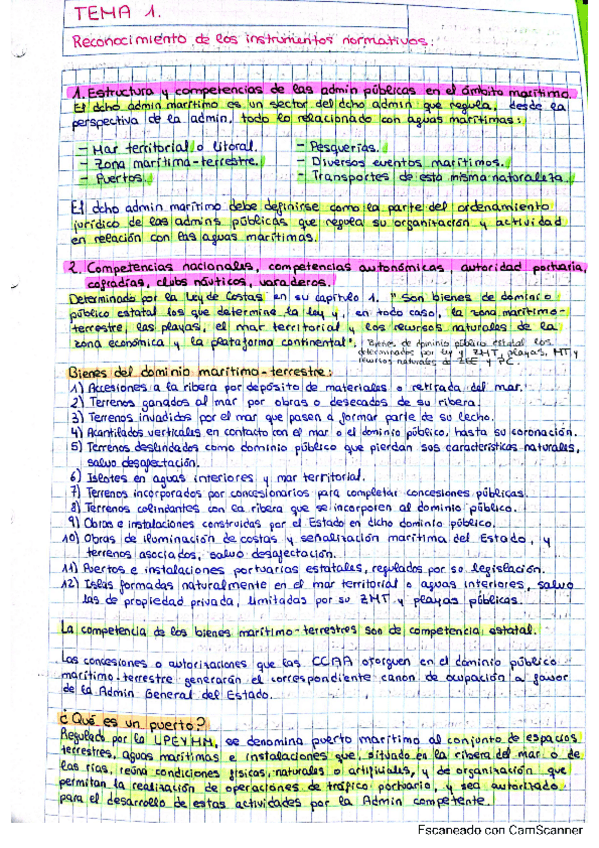 TEMA 1.
Reconocimiento de los instrumentos normativos.
1. Estructura y competencias de las admin públicas en el ámbito marítimo.
El dcho admin marítimo es un sector del dcho admin que regula, desde la
perspectiva de la admin, todo lo relacionado con aguas marítimas:
- Mar territorial o litoral. - Pesquerías.
- Zona marítima-terrestre. - Diversos eventos marítimos.
- Puertos. - Transportes de esta misma naturaleza.
El dcho admin marítimo debe definirse como la parte del ordenamiento
jurídico de las admins públicas que regula su organización y actividad
en relación con las aguas marítimas.
2. Competencias nacionales, competencias autonómicas, autoridad portuaria,
cofradías, clubs náuticos, varaderos.
Determinado por la Ley de Costas en su capítulo 1. "Son bienes de dominio
público estatal los que determine la ley y, en todo caso, la zona marítimo-
terrestre, las playas, el mar territorial y los recursos naturales de la
zona económica y la plataforma continental".
Bienes de dominio público estatal los
determinados por ley y ZMT, playas, MT y
recursos naturales de ZEE y PC.
Bienes del dominio marítimo-terrestre:
1) Accesiones a la ribera por depósito de materiales o retirada del mar.
2) Terrenos ganados al mar por obras o desecados de su ribera.
3) Terrenos invadidos por el mar que pasen a formar parte de su lecho.
4) Acantilados verticales en contacto con el mar o el dominio público, hasta su coronación.
5) Terrenos deslindados como dominio público que pierdan sus características naturales,
salvo desafectación.
6) Islotes en aguas interiores y mar territorial.
7) Terrenos incorporados por concesionarios para completar concesiones públicas.
8) Terrenos colindantes con la ribera que se incorporen al dominio público.
9) Obras e instalaciones construidas por el Estado en dicho dominio público.
10) Obras de iluminación de costas y señalización marítima del Estado, y
terrenos asociados, salvo desafectación.
11) Puertos e instalaciones portuarias estatales, regulados por su legislación.
12) Islas formadas naturalmente en el mar territorial o aguas interiores, salvo
las de propiedad privada, limitadas por su ZMT y playas públicas.
La competencia de los bienes marítimo-terrestres son de competencia estatal.
Las concesiones o autorizaciones que las CCAA otorguen en el dominio público
marítimo-terrestre generarán el correspondiente canon de ocupación a favor
de la Admin General del Estado.
¿Qué es un puerto?
Regulado por la LPEYMM, se denomina puerto marítimo al conjunto de espacios
terrestres, aguas marítimas e instalaciones que, situado en la ribera del mar o de
las rías, reúna condiciones físicas, naturales o artificiales, y de organización que
permitan la realización de operaciones de tráfico portuario, y sea autorizado
para el desarrollo de estas actividades por la Admin competente.
Escaneado con CamScanner